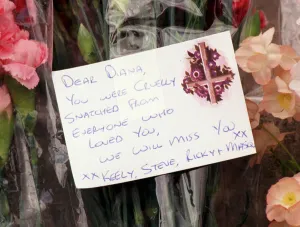 DEAR DIANA,
YOU WERE CRUELLY
SNATCHED FROM
EVERYONE WHO
LOVED YOU,
WE WILL MISS YOU
XX KEELY, STEVE, RICKY + XX